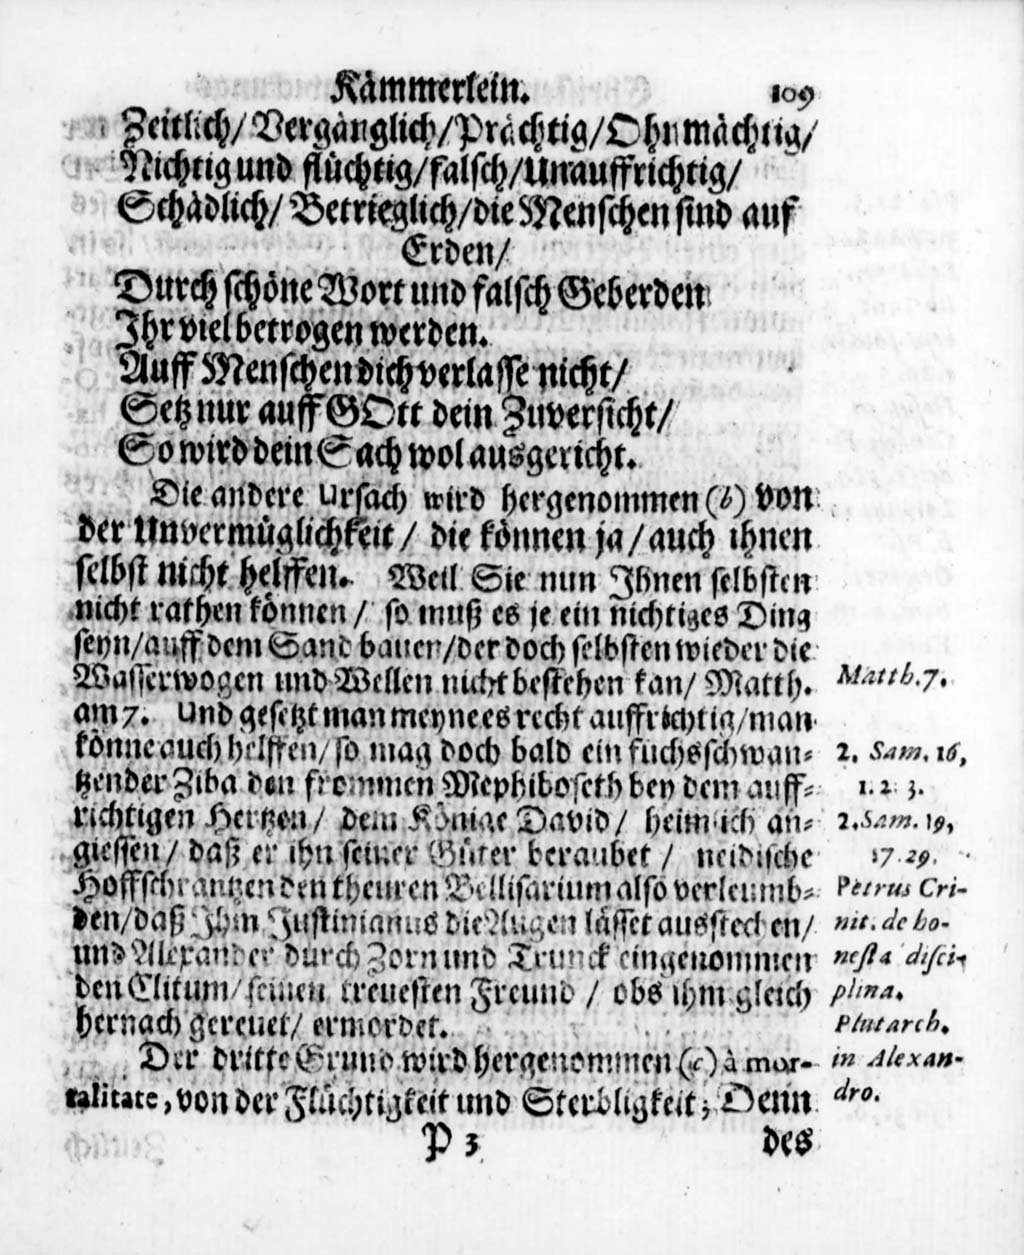 Kämmerlein. 109
Zeitlich/ Vergänglich/ Prächtig/ Ohnmächtig/
Nichtig und flüchtig/ falsch/ Unauffrichtig/
Schädlich/ Betrieglich/ die Menschen sind auf
Erden/
Durch schöne Wort und falsch Geberden
Ihr viel betrogen werden.
Auff Menschen dich verlasse nicht/
Setz nur auff GOtt dein Zuversicht/
So wird dein Sach wol ausgericht.
Die andere Ursach wird hergenommen (b) von
der Unvermüglichkeit/ die können ja/ auch ihnen
selbst nicht helffen. Weil Sie nun Ihnen selbsten
nicht rathen können/ so muß es je ein nichtiges Ding
seyn/ auff dem Sand bauen/ der doch selbsten wieder die
Wasserwogen und Wellen nicht bestehen kan/ Matth.
am 7. Und gesetzt man meyne es recht auffrichtig/ man
könne auch helffen/ so mag doch bald ein fuchsschwan-
tzender Ziba den frommen Mephiboseth bey dem auff-
richtigen Hertzen/ dem Könige David/ heimlich an-
giessen/ daß er ihn seiner Güter beraubet/ neidische
Hoffschrantzen den theuren Bellisarium also verleumb-
den/ daß Ihm Justinianus die Augen lässet ausstechen/
und Alexander durch Zorn und Trunck eingenommen
den Clitum/ seinen treuesten Freund/ obs ihm gleich
hernach gereuet/ ermordet.
Der dritte Grund wird hergenommen (c) à mor-
talitate, von der Flüchtigkeit und Sterbligkeit; Denn
P 3 des
Matth. 7.
2. Sam. 16,
1. 2. 3.
2. Sam. 19,
17. 29.
Petrus Cri-
nit. de ho-
nesta disci-
plina.
Plutarch.
in Alexan-
dro.